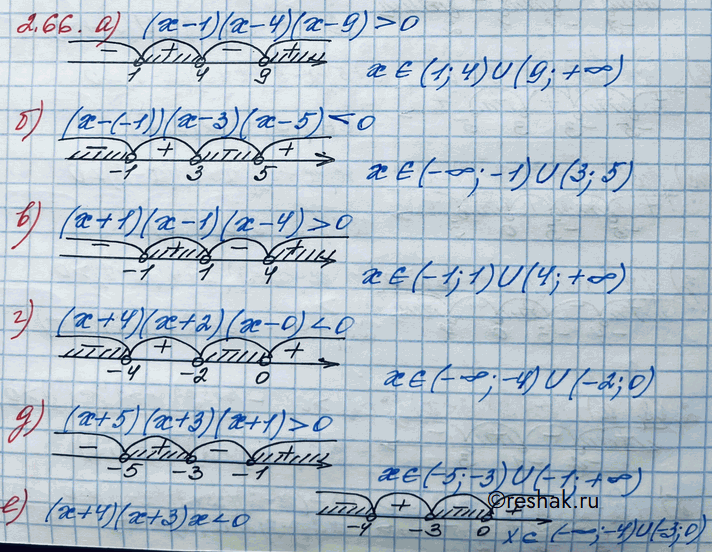 2.66. а) (x-1)(x-4)(x-9)>0
- + - +
1 4 9 x∈(1;4)∪(9;+∞)
б) (x-(-1))(x-3)(x-5)<0
- + - +
-1 3 5 x∈(-∞;-1)∪(3;5)
в) (x+1)(x-1)(x-4)>0
- + - +
-1 1 4 x∈(-1;1)∪(4;+∞)
г) (x+4)(x+2)(x-0)<0
- + - +
-4 -2 0 x∈(-∞;-4)∪(-2;0)
д) (x+5)(x+3)(x+1)>0
- + - +
-5 -3 -1 x∈(-5;-3)∪(-1;+∞)
©reshak.ru
е) (x+4)(x+3)x<0 - + - +
-4 -3 0 x∈(-∞;-4)∪(-3;0)